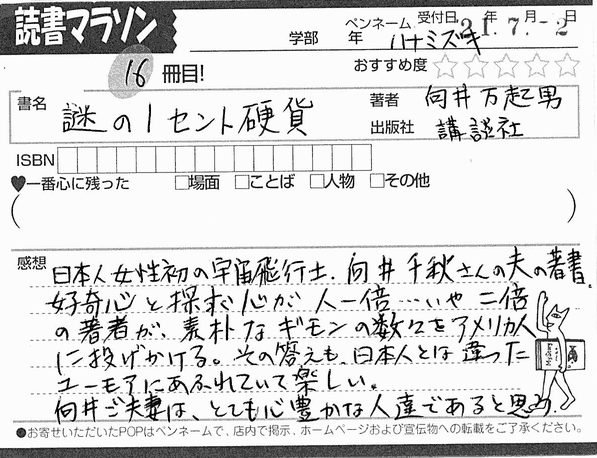 読書マラソン
学部 年 ペンネーム ハナミズキ 受付日 21.7.-2 年 月 日
16 冊目! おすすめ度 ☆☆☆☆☆
書名 謎の1セント硬貨 著者 向井万起男
出版社 講談社
ISBN
♥一番心に残った □場面 □ことば □人物 □その他
( )
感想 日本人女性初の宇宙飛行士、向井千秋さんの夫の著書。
好奇心と探求心が人一倍…いや二倍
の著者が、素朴なギモンの数々をアメリカ人
に投げかける。その答えも、日本人とは違った
ユーモアにあふれていて楽しい。
向井ご夫妻は、とても心豊かな人達であると思う。
●お寄せいただいたPOPはペンネームで、店内で掲示、ホームページおよび宣伝物への転載をご了承ください。